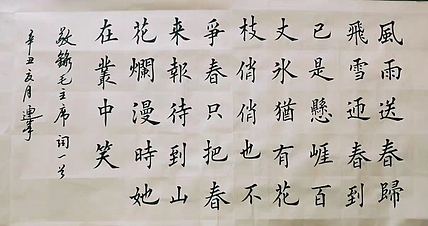 風雨送春歸
飛雪迎春到
已是懸崖百
丈冰猶有花
枝俏俏也不
爭春只把春
来報待到山
花爛漫時她
在叢中笑
敬錄毛主席词一首
辛丑亥月